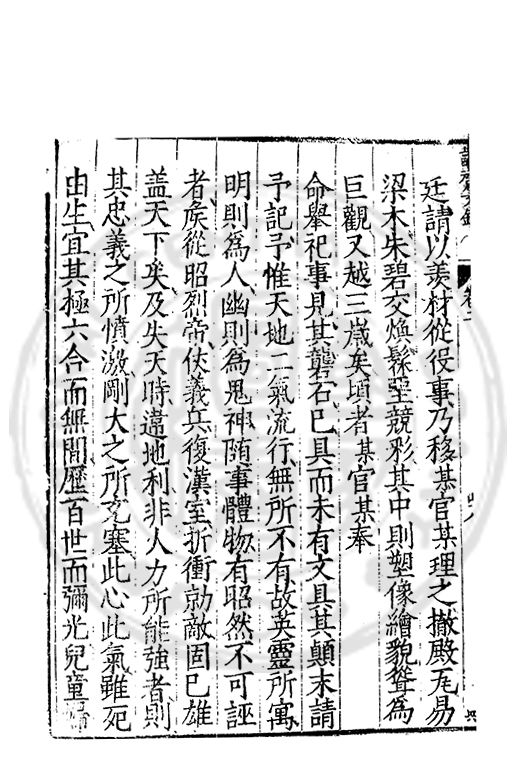 廷請以羡材從役事乃移某官某理之撤殿瓦易
梁木朱碧交煥髹堊競彩其中則塑像繪貌聳為
巨觀又越三歲矣頃者某官某奉
命舉祀事見其礱石已具而未有文具其顛末請
予記予惟天地二氣流行無所不有故英靈所寓
明則為人幽則為鬼神隨事體物有昭然不可誣
者矦從昭烈帝伏義兵復漢室折衝勍敵固已雄
盖天下矣及失天時違地利非人力所能強者則
其忠義之所憤激剛大之所充塞此心此氣雖死
由生宜其極六合而無間歷百世而彌光兒童婦